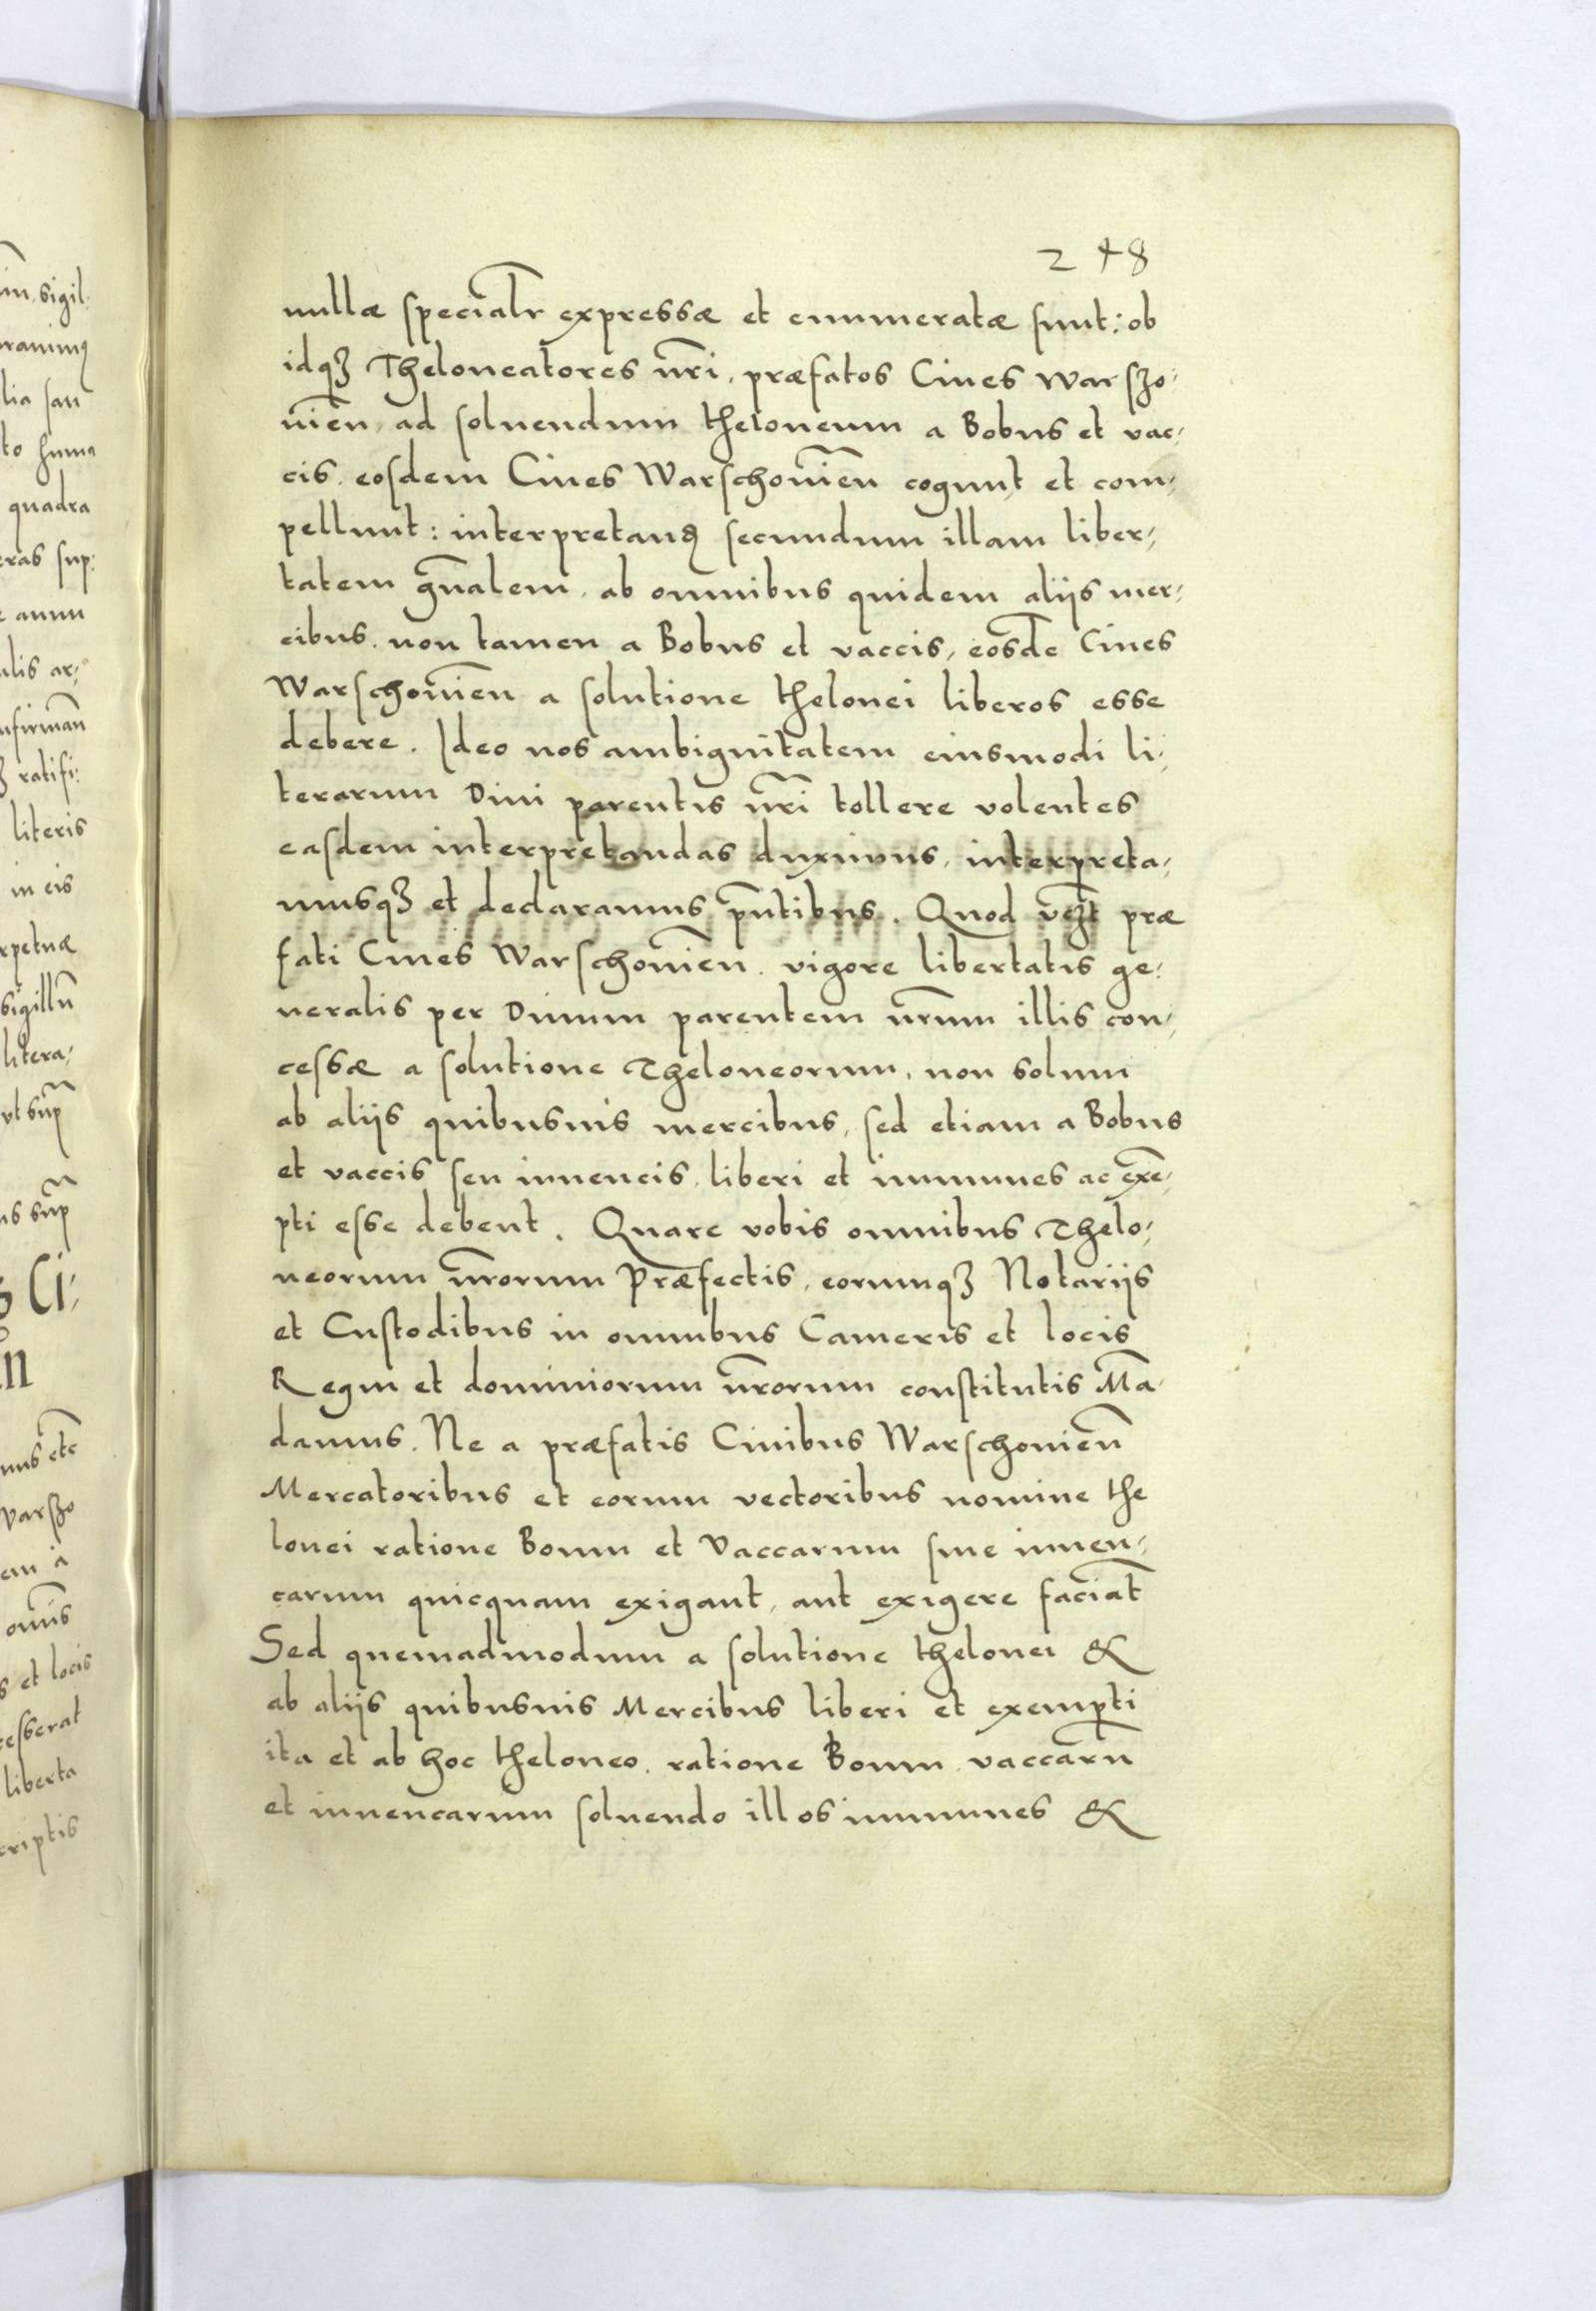 248
nullæ specialr expressæ et enumeratæ sunt: ob
idqȝ Theloneatores nr̃i, præfatos Ciues warszo-
uien̄, ad soluendum theloneum a Bobus et vac-
cis, eosdem Ciues Warschouien̄ cogunt et com-
pellunt: interpretanꝫ secundum illam liber-
tatem gn̄alem, ab omnibus quidem aliis mer-
cibus, non tamen a Bobus et vaccis, eosdē Ciues
Warschouien̄ a solutione thelonei liberos esse
debere. Ideo nos ambiguitatem eiusmodi li-
terarum Diui parentis nr̃i tollere volentes
easdem interpretandas duximus, interpreta-
musqȝ et declaramus pn̄tibus. Quod vcȝt præ
fati Ciues Warschouien̄, vigore libertatis ge-
neralis per Diuum parentem nr̃um illis con-
cessæ a solutione Theloneorum, non solum
ab aliis quibusuis mercibus, sed etiam a Bobus
et vaccis seu iuuencis, liberi et immunes ac exē-
pti esse debent. Quare vobis omnibus Thelo-
neorum nr̃orum Præfectis, eorumqȝ Notariis
et Custodibus in omnibus Cameris et locis
Regni et dominiorum nr̃orum constitutis Mā-
damus. Ne a præfatis Ciuibus Warschouien̄
Mercatoribus et eorum vectoribus nomine the
lonei ratione Boum et Vaccarum siue iuuen-
carum quicquam exigant, aut exigere faciāt
Sed quemadmodum a solutione thelonei &
ab aliis quibusuis Mercibus liberi et exempti
ita et ab hoc theloneo, ratione Boum vaccarū
et iuuencarum soluendo illos immunes &